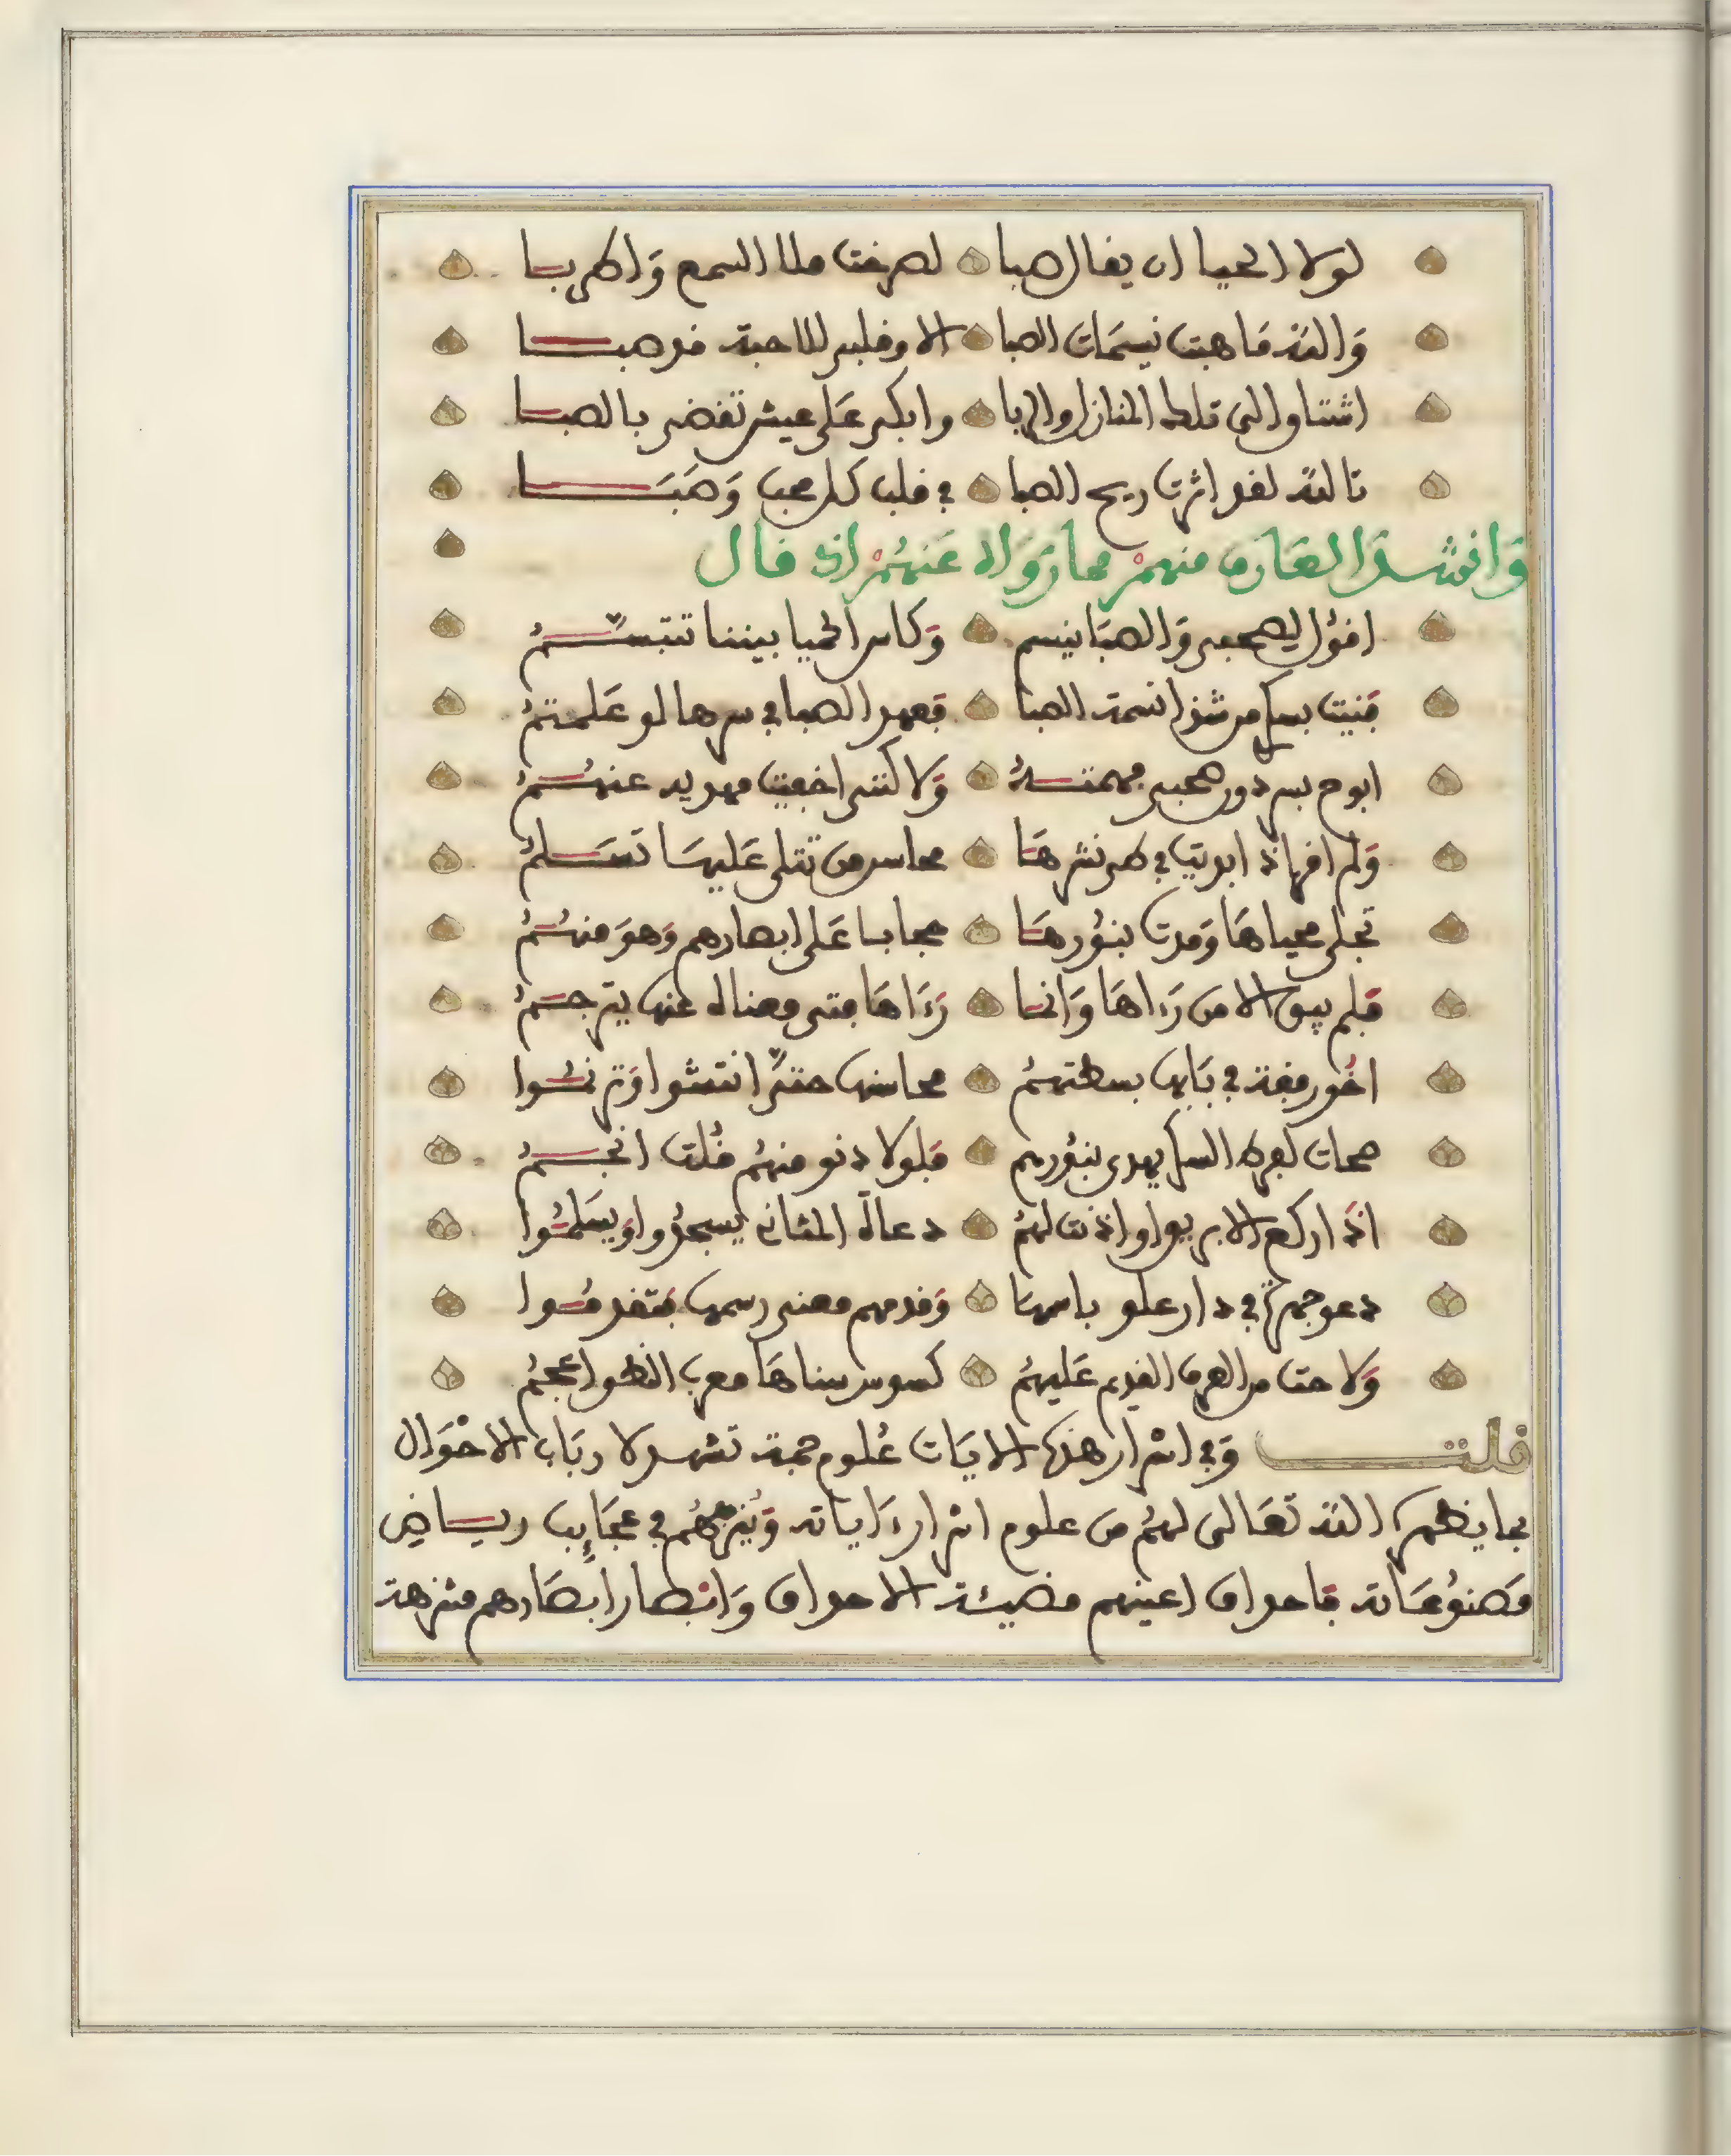 لولا الحيا ان يقال صبا لصرخت ملا السمع واطربا
والله ما هبت نسيمات الصبا الا وقلبي للاحبة قد صبا
اشتاق الى تلك المنازل والربا وابكي على عيش تقضى بالصبا
تالله لقد اثرت ريح الصبا في قلب كل محب وصبا
وانشد العارف منهم مما رواه عنهم اذ قال
اقول لصحبي والصبا ينسم وكاس الحميا بيننا تتبسم
فنيت بسكر من شذا نسمة الصبا فعهد الصبا في سرها لو علمتم
ابوح بسر دون صحبي فهمته ولاكنني اخفيت مهديه عنهم
ولم افه اذ ابديت في طي نشرها محاسن من تتلى عليها تسلم
تجلى محياها ومدت بنورها حجابا على ابصارهم وهو منهم
فلم يبق الا من رءاها وانما رءاها فتى معناه عنها يترجم
اخو رفقة في بابها بسطتهم محاسنها حتى انتشوا وترنموا
صحات لفرط السكر يهدى بنورهم فلولا دنو منهم قلت انجم
اذا ركع الابريق او اذنت لهم دعاة المثاني يسجدوا ويسلموا
دعوا جهرة في دار علو باسمها وقدمهم معنى اسمها فتقدموا
ولاحت من العهد القديم عليهم كسوس سناها معرب النطق اعجم
قلت وفي اسرار هذه الايات علوم جمة تشهد لارباب الاحوال
بما يفهم الله تعالى لهم من علوم اسرار ءاياته وينزههم في عجايب رياض
مصنوعاته فاحداق اعينهم مضيئة الاحداق وانظار ابصارهم منزهة